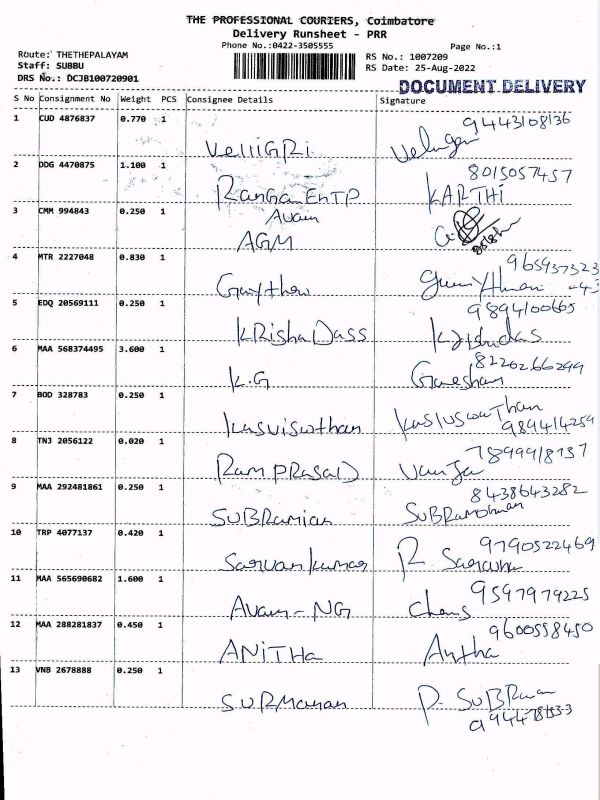 THE PROFESSIONAL COURIERS, Coimbatore
Delivery Runsheet - PRR
Phone No.:0422-3505555
Page No.:1
Route: THETHEPALAYAM
RS No.: 1007209
Staff: SUBBU
RS Date: 25-Aug-2022
DRS No.: DCJB100720901
DOCUMENT DELIVERY
S No Consignment No Weight PCS Consignee Details Signature
9443108136
1 CUD 4876837 0.770 1
VelliGRi
8015057457
2 DDG 4470875 1.100 1
RanGan EnTP KARTHi
3 CMM 994843 0.250 1
Avain
AGM
4 MTR 2227048 0.830 1
9894100665
5 EDQ 20569111 0.250 1
KRisha Dass
6 MAA 568374495 3.600 1
8220266299
K.G Ganeshan
7 BOD 328783 0.250 1
Kasviswothan
8 TNJ 2056122 0.020 1
Ram PRASAD
9 MAA 292481861 0.250 1
8438643282
SUBRamian
10 TRP 4077137 0.420 1
9790522469
Sarvan kumar
11 MAA 565690682 1.600 1
9597979225
Avain-NG
12 MAA 288281837 0.450 1
9600558450
ANiTHa
13 VNB 2678888 0.250 1
SURManan